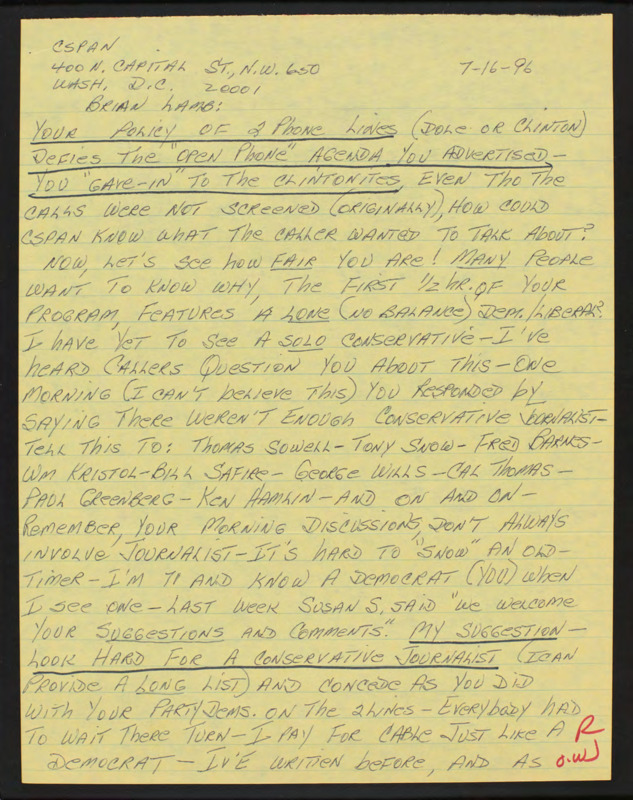 CSPAN
400 N. CAPITAL ST., N.W. 650 7-16-96
WASH, D.C. 20001
BRIAN LAMB:
YOUR POLICY OF 2 PHONE LINES (DOLE OR CLINTON)
DEFIES THE "OPEN PHONE" AGENDA YOU ADVERTISED-
YOU "GAVE-IN" TO THE CLINTONITES, EVEN THO THE
CALLS WERE NOT SCREENED (ORIGINALLY), HOW COULD
CSPAN KNOW WHAT THE CALLER WANTED TO TALK ABOUT?
NOW, LET'S SEE HOW FAIR YOU ARE! MANY PEOPLE
WANT TO KNOW WHY, THE FIRST 1/2 HR. OF YOUR
PROGRAM, FEATURES A LONE (NO BALANCE) DEM./LIBERAL?
I HAVE YET TO SEE A SOLO CONSERVATIVE-I'VE
HEARD CALLERS QUESTION YOU ABOUT THIS-ONE
MORNING (I CAN'T BELIEVE THIS) YOU RESPONDED BY
SAYING THERE WEREN'T ENOUGH CONSERVATIVE JOURNALIST-
TELL THIS TO: THOMAS SOWELL-TONY SNOW-FRED BARNES-
WM KRISTOL-BILL SAFIRE-GEORGE WILLS-CAL THOMAS-
PAUL GREENBERG-KEN HAMLIN-AND ON AND ON-
REMEMBER, YOUR MORNING DISCUSSIONS, DON'T ALWAYS
INVOLVE JOURNALIST-IT'S HARD TO "SNOW" AN OLD-
TIMER-I'M 71 AND KNOW A DEMOCRAT (YOU) WHEN
I SEE ONE-LAST WEEK SUSAN S. SAID "WE WELCOME
YOUR SUGGESTIONS AND COMMENTS". MY SUGGESTION-
LOOK HARD FOR A CONSERVATIVE JOURNALIST (I CAN
PROVIDE A LONG LIST) AND CONCEDE AS YOU DID
WITH YOUR PARTY DEMS. ON THE 2 LINES-EVERYBODY HAD
TO WAIT THERE TURN-I PAY FOR CABLE JUST LIKE A R
DEMOCRAT-IV'E WRITTEN BEFORE, AND AS O.W